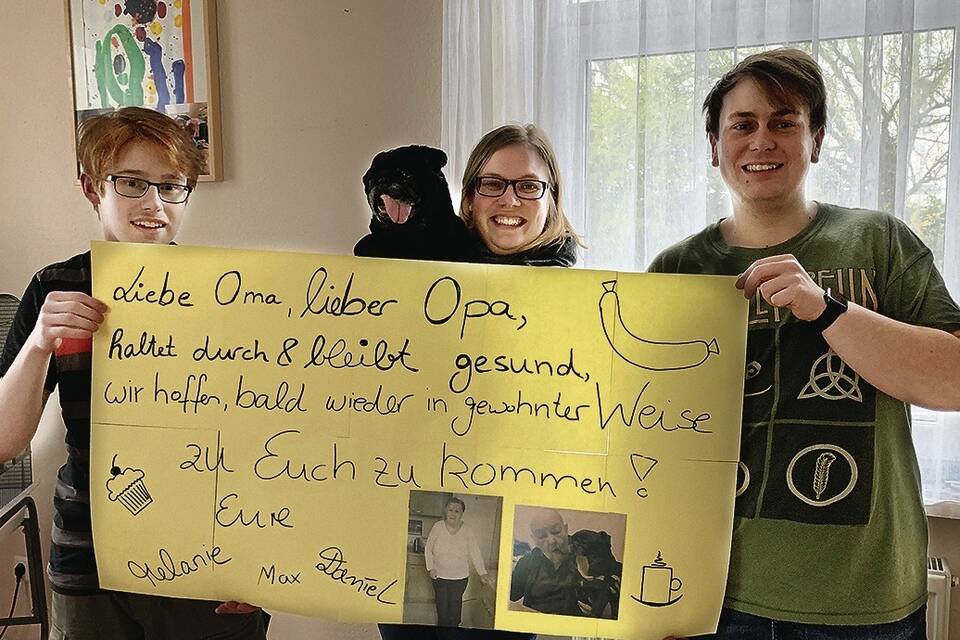 Liebe Oma, lieber Opa,
haltet durch & bleibt gesund,
wir hoffen, bald wieder in gewohnter Weise
zu Euch zu kommen!
Eure
Melanie Max Daniel